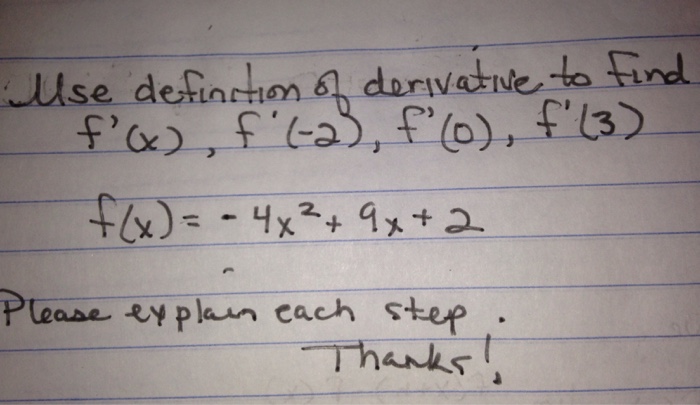 Use definition of derivative to find
f'(x), f'(-2), f'(0), f'(3)
f(x) = -4x² + 9x + 2
Please explain each step.
Thanks!